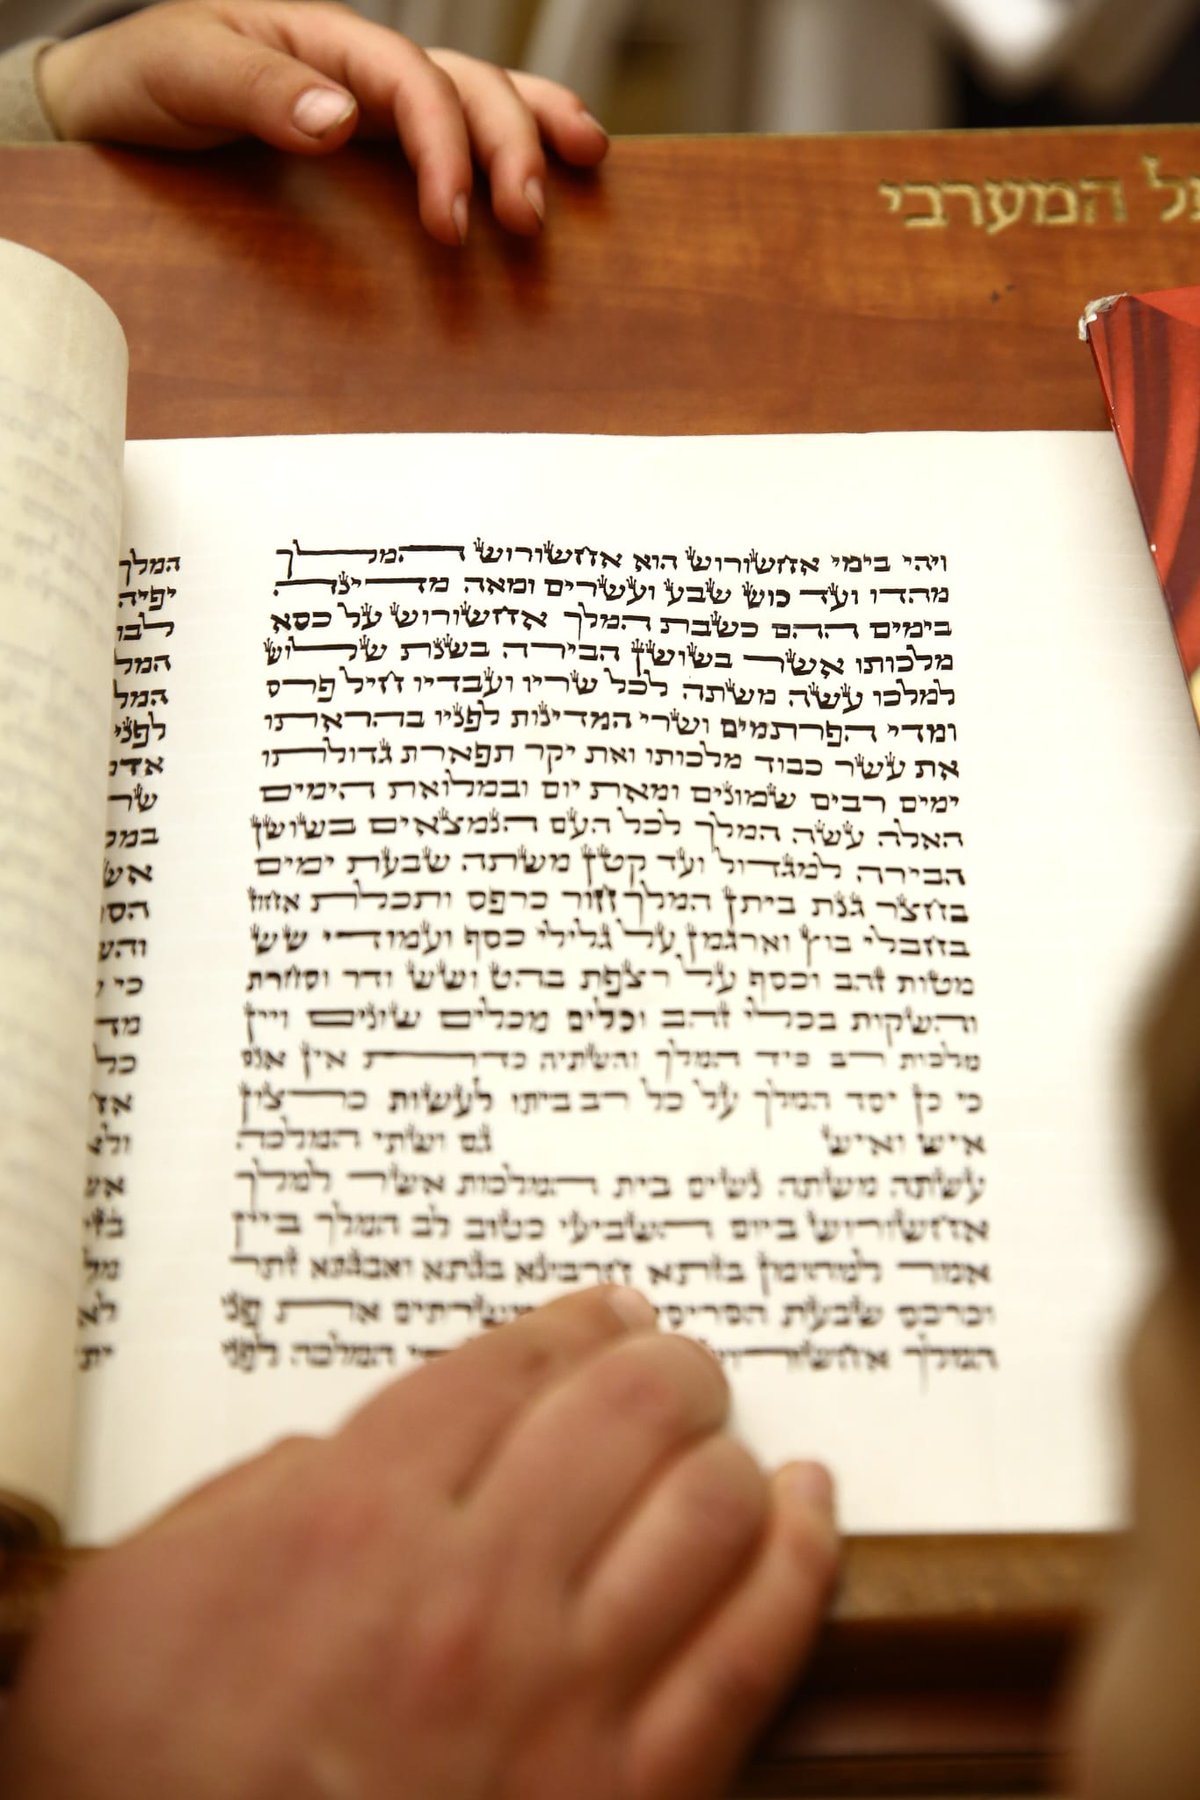 תל המערבי
ויהי בימי אחשורוש הוא אחשורוש המלך
מהדו ועד כוש שבע ועשרים ומאה מדינה
בימים ההם כשבת המלך אחשורוש על כסא
מלכותו אשר בשושן הבירה בשנת שלוש
למלכו עשה משתה לכל שריו ועבדיו חיל פרס
ומדי הפרתמים ושרי המדינות לפניו בהראתו
את עשר כבוד מלכותו ואת יקר תפארת גדולתו
ימים רבים שמונים ומאת יום ובמלואת הימים
האלה עשה המלך לכל העם הנמצאים בשושן
הבירה למגדול ועד קטן משתה שבעת ימים
בחצר גנת ביתן המלך חור כרפס ותכלת אחוז
בחבלי בוץ וארגמן על גלילי כסף ועמודי שש
מטות זהב וכסף על רצפת בהט ושש ודר וסחרת
והשקות בכלי זהב וכלים מכלים שונים ויין
מלכות רב כיד המלך והשתיה כדת אין אנס
כי כן יסד המלך על כל רב ביתו לעשות כרצון
איש ואיש גם ושתי המלכה
עשתה משתה נשים בית המלכות אשר למלך
אחשורוש ביום השביעי כטוב לב המלך ביין
אמר למהומן בזתא חרבונא בגתא ואבגתא זתר
וכרכס שבעת הסריס משרתים את פני
המלך אחשורו המלכה לפני
המלך
יפיה
לבו
המל
המל
לפני
אדמ
שר
במכ
אש
הסו
והש
כי
מד
כל
אז
ולא
אש
בזי
מל
לא
ית